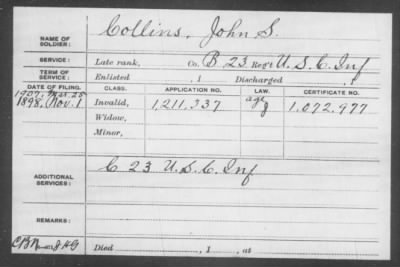 NAME OF SOLDIER: Collins, John S.
SERVICE: Late rank, Co. B 23 Reg't U.S.C. Inf
TERM OF SERVICE: Enlisted , 1 Discharged , 1
DATE OF FILING. CLASS. APPLICATION NO. LAW. CERTIFICATE NO.
1907, Mar 25
1898, Nov. 1 Invalid, 1,211,337 age g 1,072,977
Widow,
Minor,
ADDITIONAL SERVICES: C 23 U.S.C. Inf
REMARKS:
Died , 1 , at